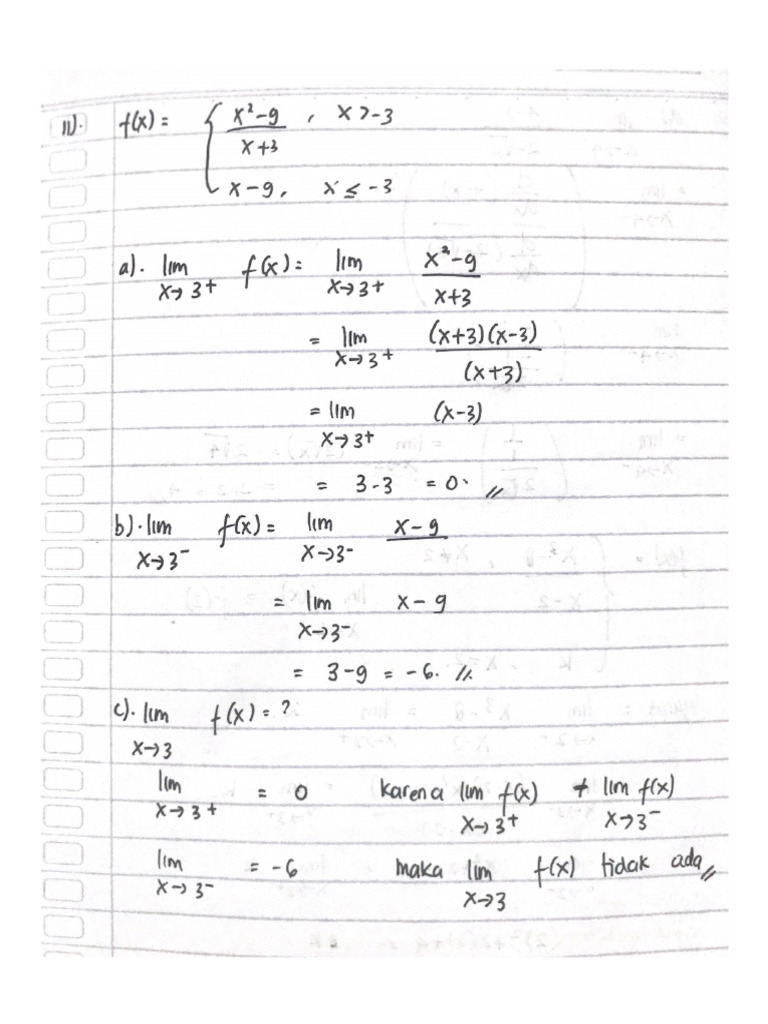 11). f(x) = { x²-9 / x+3 , x > -3
x-9, x ≤ -3
a). lim x→3+ f(x) = lim x→3+ x²-9 / x+3
= lim x→3+ (x+3)(x-3) / (x+3)
= lim x→3+ (x-3)
= 3-3 = 0. //
b). lim x→3- f(x) = lim x→3- x-9
= lim x→3- x-9
= 3-9 = -6. //.
c). lim x→3 f(x) = ?
lim x→3+ = 0 karena lim x→3+ f(x) ≠ lim x→3- f(x)
lim x→3- = -6 maka lim x→3 f(x) tidak ada //